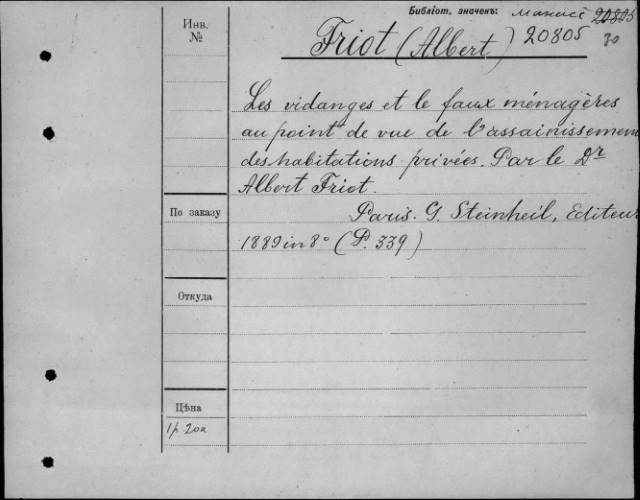 Библіот. значекъ:
20805
Инв.
№
Friot (Albert) 20805
Les vidanges et le faux ménagères
au point de vue de l'assainissemen
des habitations privées. Par le Dr
Albert Friot.
По заказу
Paris. G. Steinheil, Editeur
1889 in 8° (P. 339)
Откуда
Цѣна
1р 20к